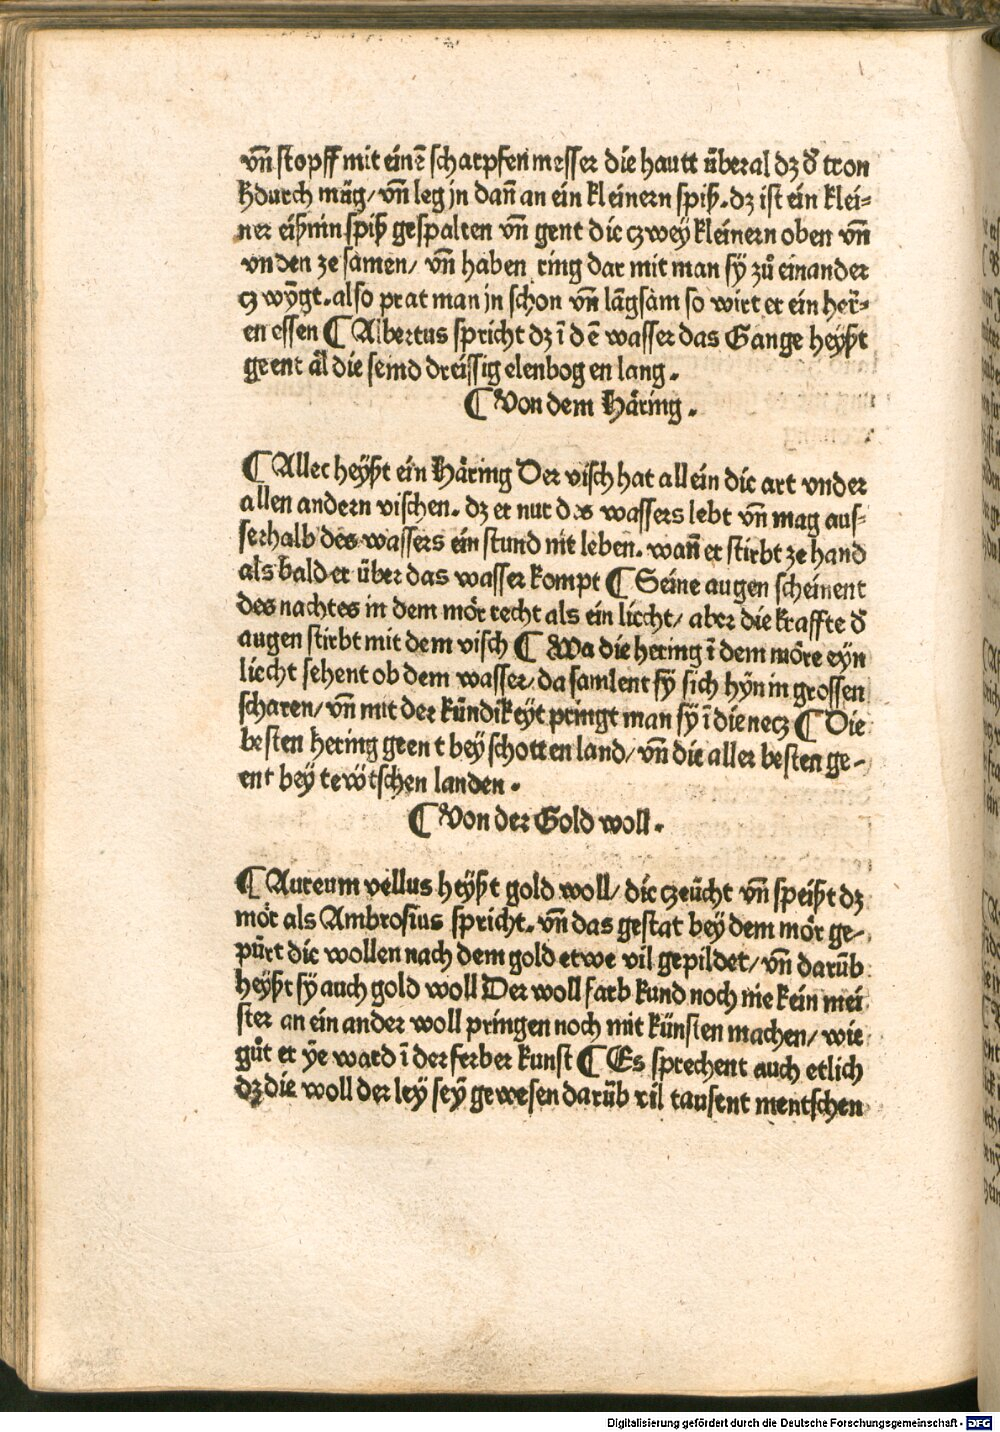 vn̄ stopff mit einē scharpfen messer die hautt überal dz d' tron
hdurch müg/ vn̄ leg jn dan̄ an ein kleinern spiß. dz ist ein klei-
ner eißnin spiß gespalten vn̄ gent die czwey kleinern oben vn̄
vnden ze samen/ vn̄ haben ring dar mit man sÿ zů einander
czwÿgt. also prat man jn schon vn̄ lāgsam so wirt er ein her̄-
en essen ¶ Albertus spricht dz ī dē wasser das Gange heyßt
geent äl die seind dreissig elenbogen lang.
¶ Von dem Häring.
¶ Allec heÿßt ein Häring Der visch hat allein die art vnder
allen andern vischen. dz er nur des wassers lebt vn̄ mag aus-
serhalb des wassers ein stund nit leben. wan̄ er stirbt ze hand
als bald er über das wasser kompt ¶ Seine augen scheinent
des nachtes in dem mör recht als ein liecht/ aber die kraffte d'
augen stirbt mit dem visch ¶ Wa die hering ī dem möre eyn
liecht sehent ob dem wasser/ da samlent sÿ sich hÿn in grossen
scharen/ vn̄ mit der kündikeÿt pringt man sÿ ī die necz ¶ Die
besten hering geent beÿ schotten land/ vn̄ die aller besten ge-
ent beÿ tewtschen landen.
¶ Von der Gold woll.
¶ Aureum vellus heÿßt gold woll/ die czeücht vn̄ speißt dz
mör als Ambrosius spricht. vn̄ das gestat bey dem mör ge-
pürt die wollen nach dem gold etwe vil gepildet/ vn̄ darüb
heÿßt sÿ auch gold woll Der woll farb kund noch nie kein mei
ster an ein ander woll pringen noch mit künsten machen/ wie
gůt er ÿe ward ī der ferber kunst ¶ Es sprechent auch etlich
dz die woll der leÿ seÿ gewesen darüb vil tausent mentschen
Digitalisierung gefördert durch die Deutsche Forschungsgemeinschaft - DFG